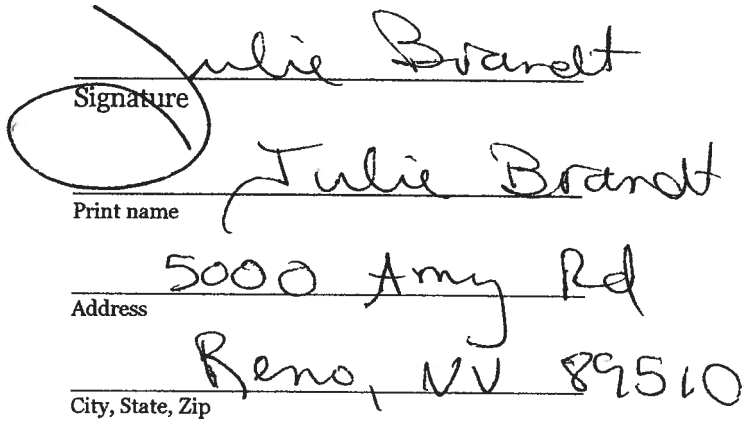 Julie Brandt
Signature
Julie Brandt
Print name
5000 Amy Rd
Address
Reno, NV 89510
City, State, Zip